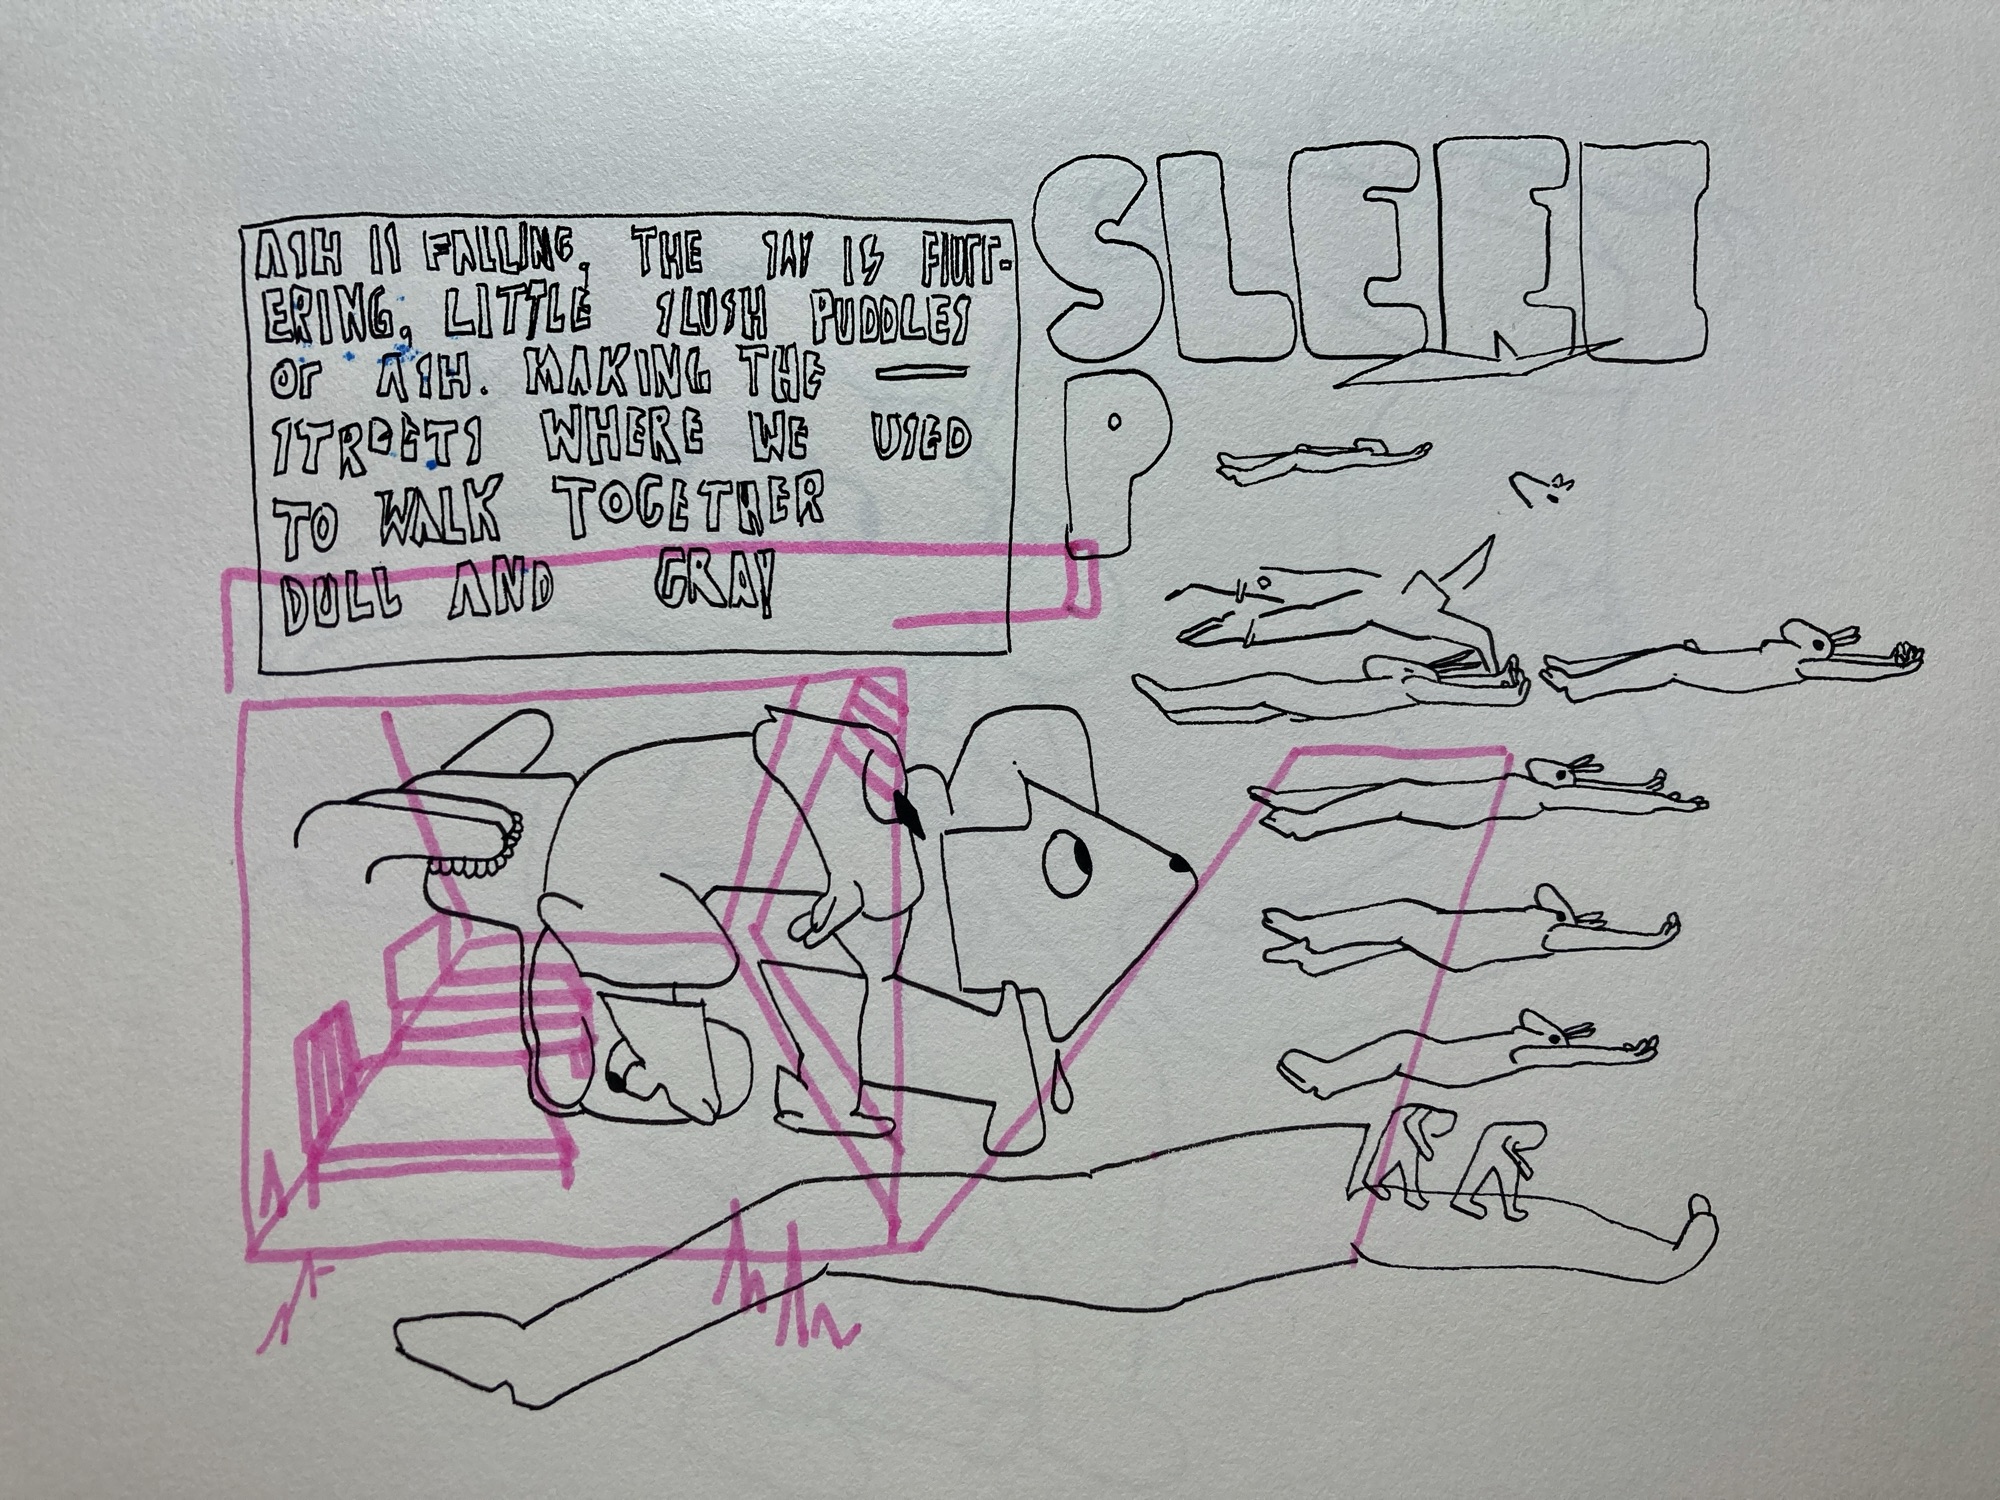 ASH IS FALLING, THE SAY IS FLUTT-
ERING, LITTLE SLUSH PUDDLES
OF ASH. MAKING THE —
STREETS WHERE WE USED
TO WALK TOGETHER
DULL AND GRAY
SLEEI
P